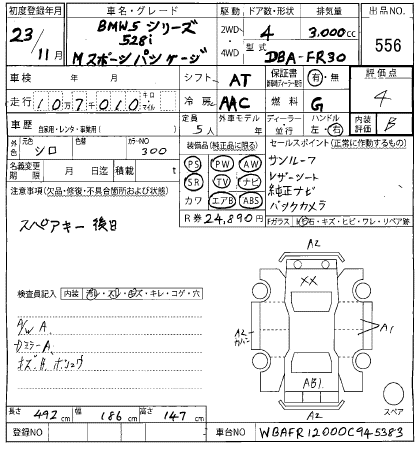 初度登録年月 車名・グレード 駆動 ドア数・形状 排気量 出品NO.
23/11月 BMW5シリーズ 2WD・4WD 4 3.000cc 556
528i
Mスポーツパッケージ 型式 DBA-FR30
車検 年 月 シフト AT 保証書 有・無 評価点
走行 10万7千010 キロ マイル 冷房 AAC 燃料 G 4
車歴 自家用・レンタ・事業用( ) 定員 5人 外車モデル 年 ディーラー・並行 ハンドル 左・右 内装評価 B
外色 元色 シロ 色替 カラーNO 300
名義変更期限 月 日迄 積載量 t
装備品(純正品に限る)
PS PW AW
SR TV ナビ
カワ エアB ABS
R券 24,890円
セールスポイント(正常に動作するもの)
サンルーフ
レザーシート
純正ナビ
バックカメラ
Fガラス 石・キズ・ヒビ・ワレ・リペア跡
注意事項(欠品・修復・不具合箇所および状態)
スペアキー 後日
検査員記入 内装 汚レ・スレ・キズ・キレ・コゲ・穴
A/W A.
DミラーA.
A2
XX
A2
カバー
A1
AB1
A2
スペア
長さ 492cm 幅 186cm 高さ 147cm
登録NO 車台NO WBAFR12000C945383